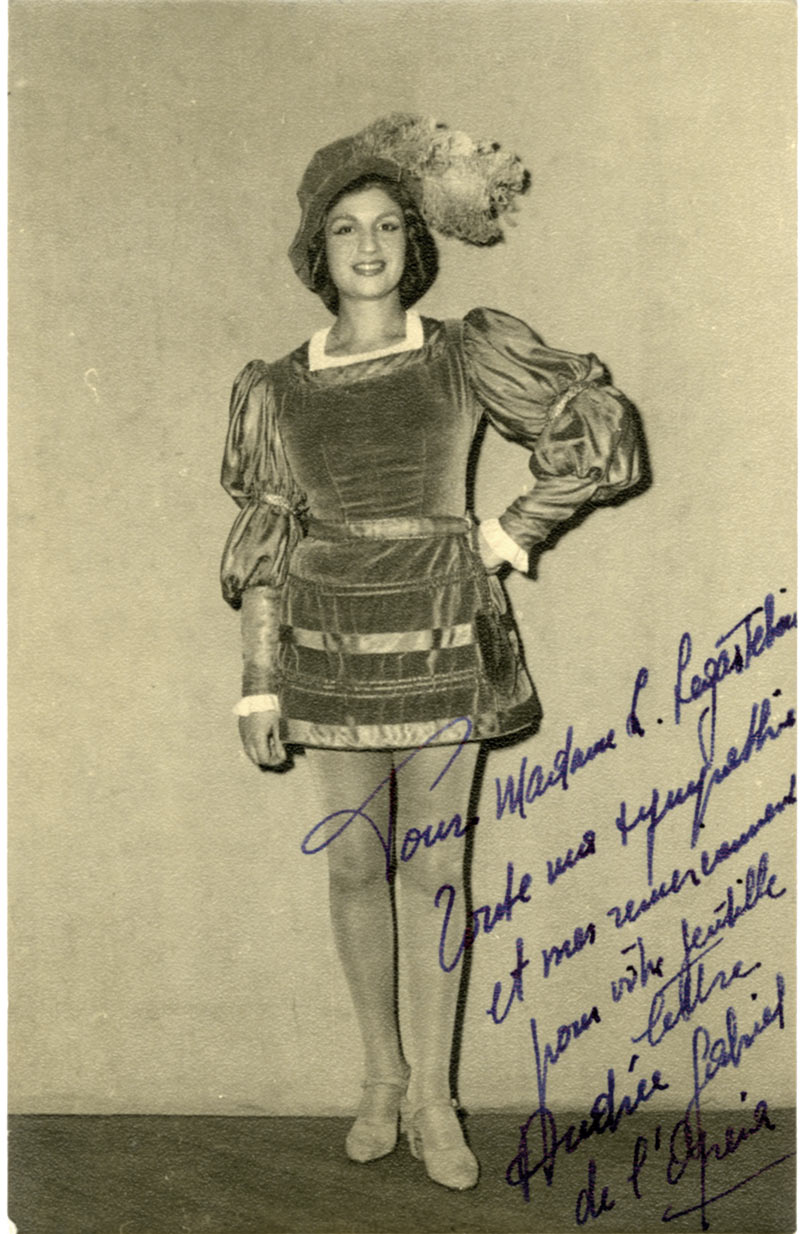 Pour Madame L. Legastelois
Toute ma sympathie
et mes remerciements
pour vôtre gentille
lettre
Andrée Gabriel
de l'Opéra